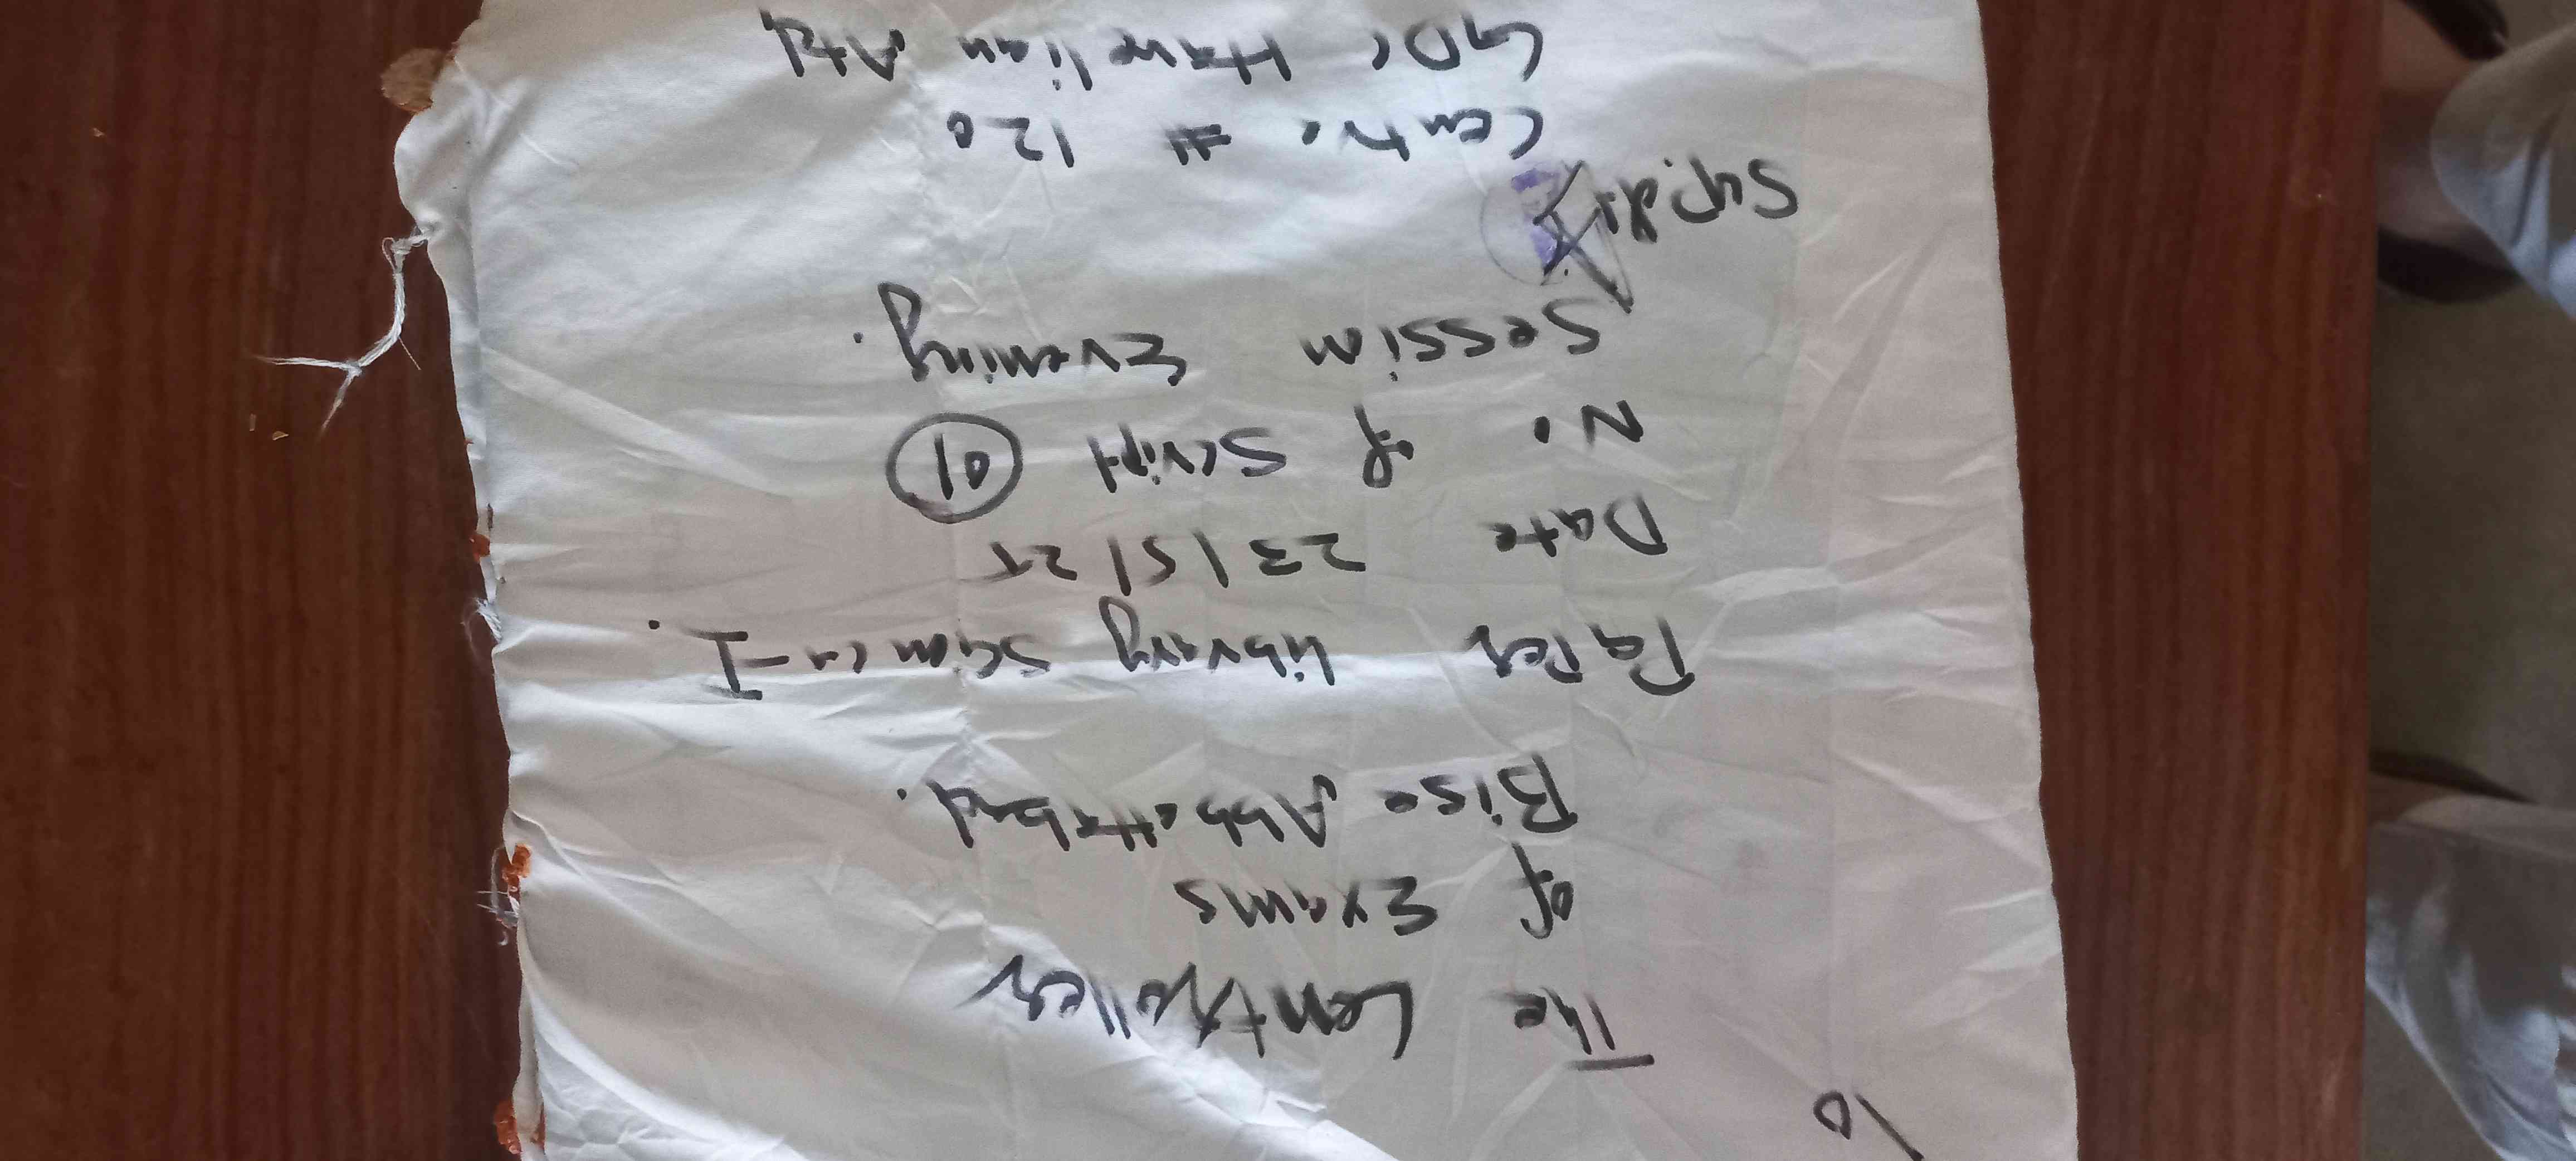 To
The Controller
of Exams
Bise Abbottabad.
Paper Library Science-I.
Date 23/5/25
No of Script 01
Session Evening.
Supdt
Centre # 120
GDC Havelian Atd